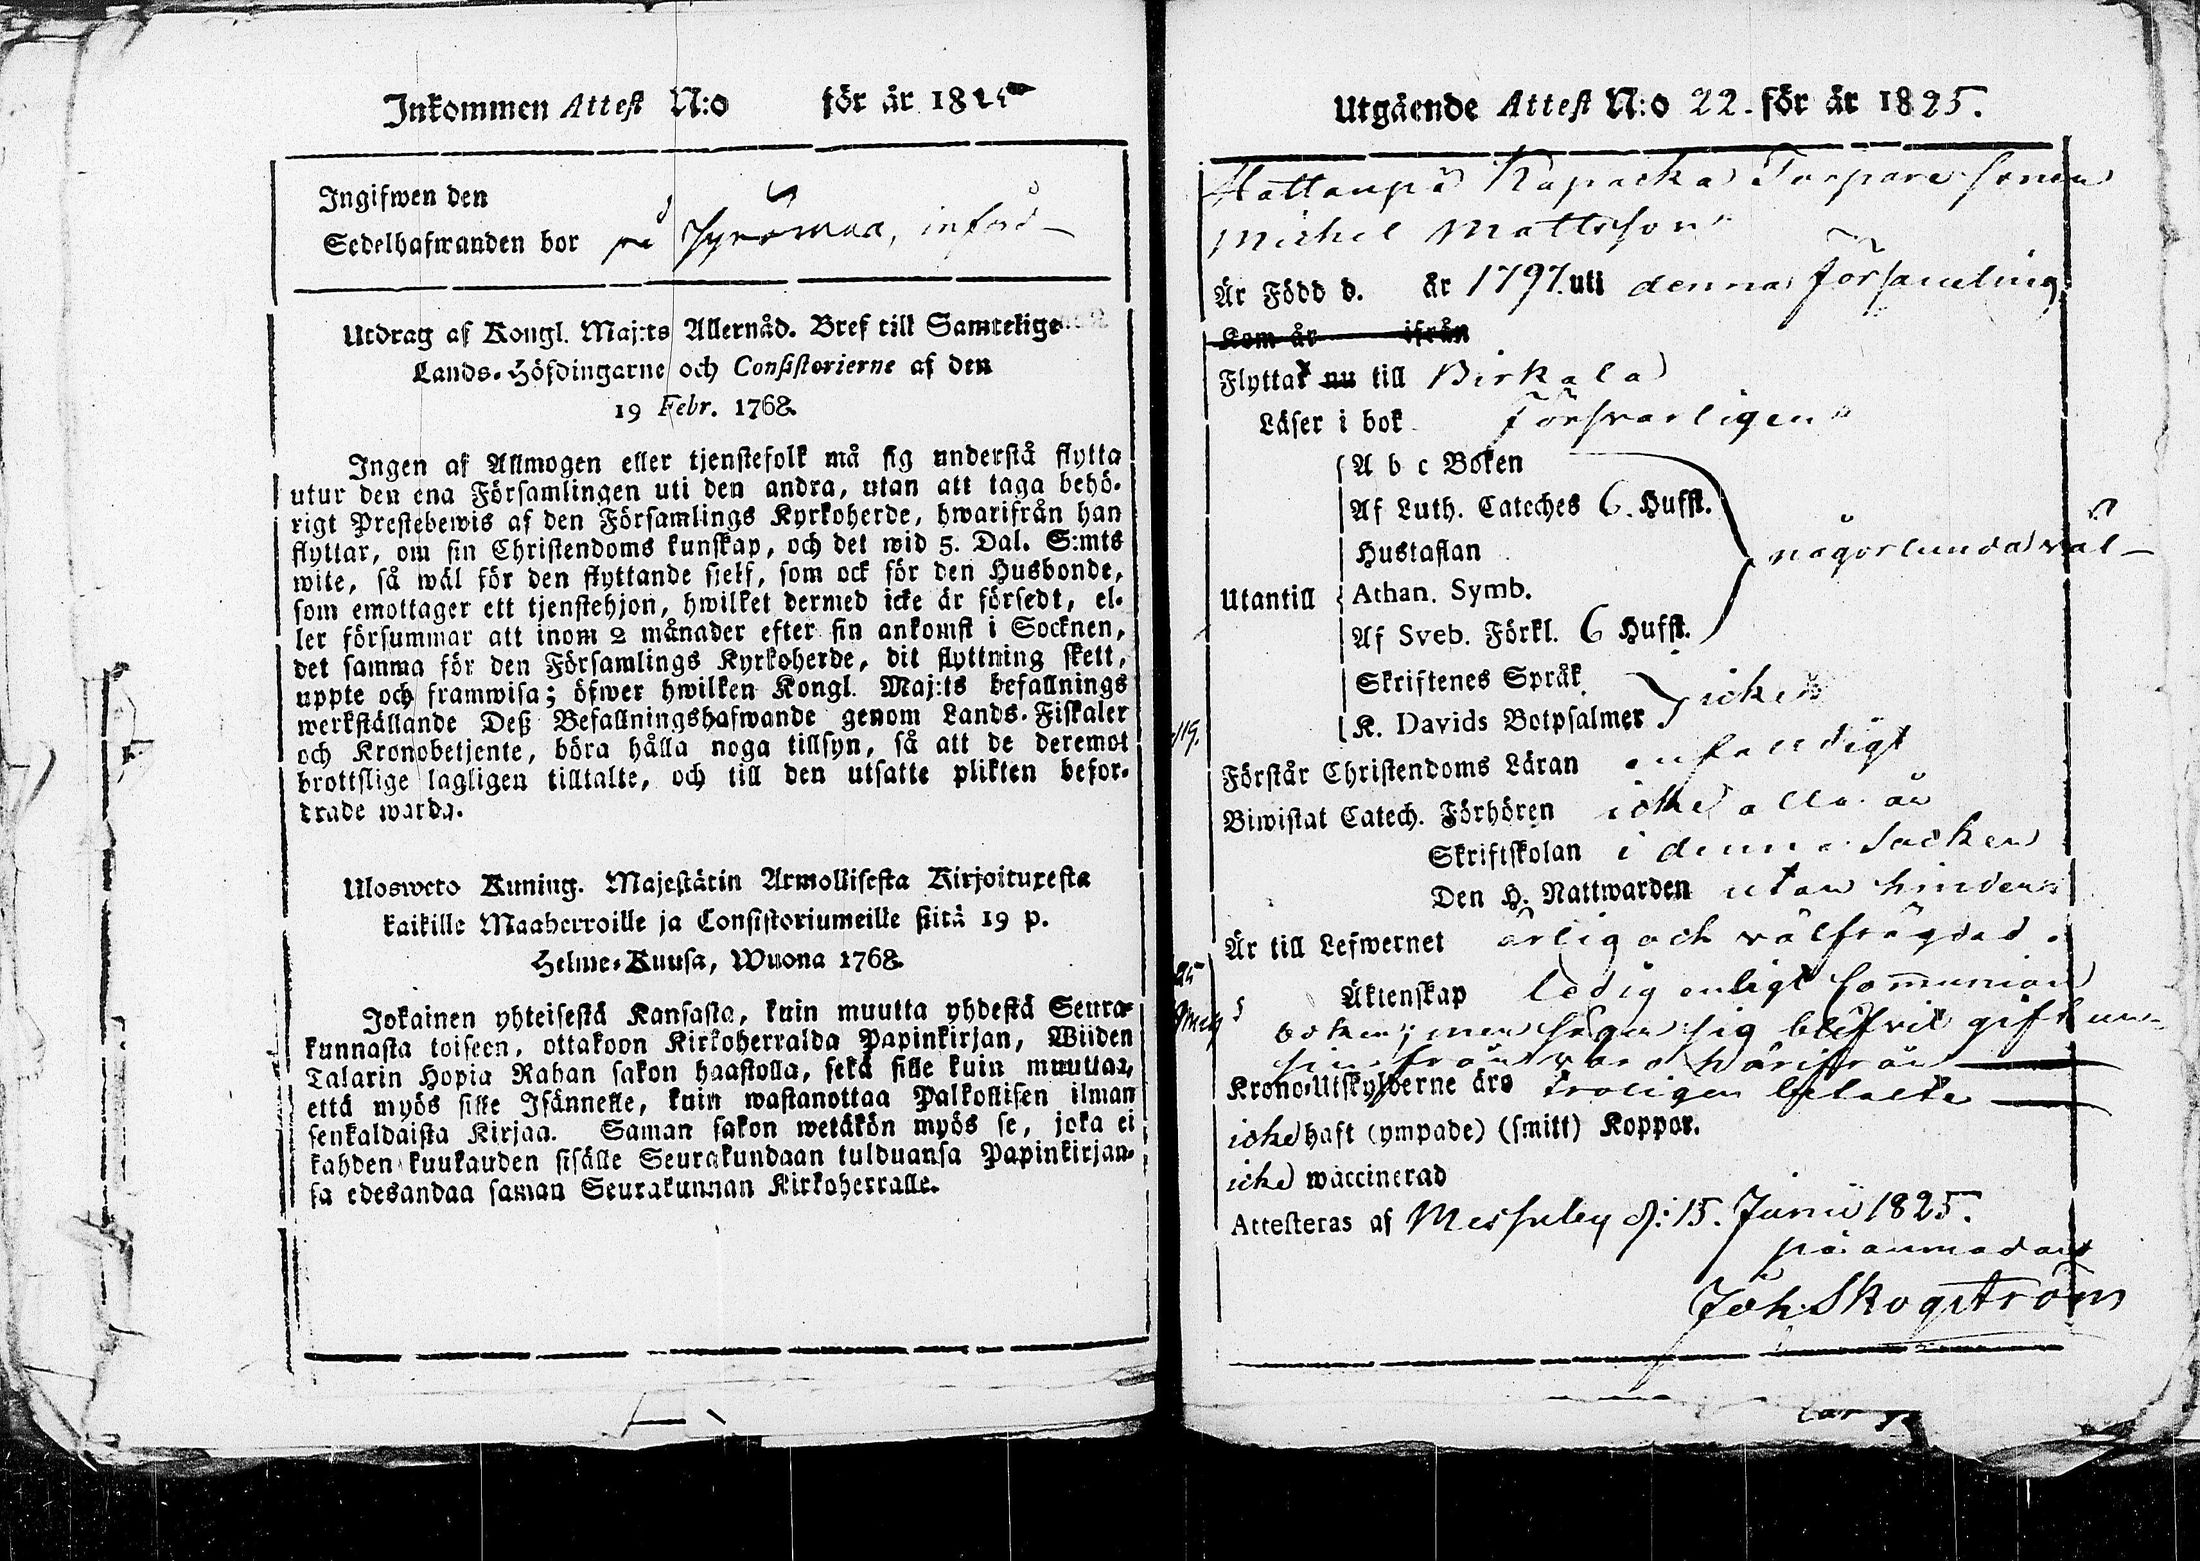 Inkommen Attest N:o för år 1825
Ingifwen den
Sedelhafwanden bor på införd
Utdrag af Kongl. Maj:ts Allernåd. Bref till Samtelige
Lands-Höfdingarne och Consistorierne af den
19 Febr. 1768.
Ingen af Allmogen eller tjenstefolk må sig understå flytta
utur den ena Församlingen uti den andra, utan att taga behö-
rigt Prestebewis af den Församlings Kyrkoherde, hwarifrån han
flyttar, om sin Christendoms kunskap, och det wid 5. Dal. S:mts
wite, så wäl för den flyttande sielf, som ock för den Husbonde,
som emottager ett tjenstehjon, hwilket dermed icke är försedt, el-
ler försummar att inom 2 månader efter sin ankomst i Socknen,
det samma för den Församlings Kyrkoherde, dit flyttning skett,
uppte och framwisa; öfwer hwilken Kongl. Maj:ts befallnings
werkställande Deß Befallningshafwande genom Lands-Fiskaler
och Kronobetjente, böra hålla noga tillsyn, så att de deremot
brottslige lagligen tilltalte, och till den utsatte plikten befor-
drade warda.
Ulosweto Kuning. Majestätin Armollisesta Kirjoituxesta
kaikille Maaherroille ja Consistoriumeille siitä 19 p.
Helme-Kuusa, Wuona 1768.
Jokainen yhteisestä Kansasta, kuin muutta yhdestä Seura-
kunnasta toiseen, ottakoon Kirkoherralda Papinkirjan, Wiiden
Talarin Hopia Rahan sakon haastolla, sekä sille kuin muuttaa,
että myös sille Isännelle, kuin wastanottaa Palkollisen ilman
senkaldaista Kirjaa. Saman sakon wetäkön myös se, joka ei
kahden kuukauden sisälle Seurakundaan tulduansa Papinkirjan-
sa edesandaa saman Seurakunnan Kirkoherralle.
Utgående Attest N:o 22. för år 1825.
Hattanpä Kapacka Torpare sonen
Michel Mattsson
Är Född d. år 1797. uti denna Församling
Kom år ifrån
Flyttar nu till Birkala
Läser i bok försvarligen
A b c Boken
Af Luth. Cateches 6. Hufst.
Hustaflan någorlunda väl
Utantill Athan. Symb.
Af Sveb. Förkl. 6 Hufst.
Skriftenes Språk
K. Davids Botpsalmer icke
Förstår Christendoms Läran enfaldigt
Biwistat Catech. Förhören icke alla år
Skriftskolan i denna Socken
Den H. Nattwarden utan hinder
Är till Lefwernet ärlig och välfrägdad.
Äktenskap ledig enligt Communion
boken; men säger sig blifvit gift un-
sin frånvaro härifrån
Krono-Utskylderne äro troligen betalte
icke haft (ympade) (smitt) Koppor.
icke waccinerad
Attesteras af Messuby d: 15. Junii 1825.
på anmodan
Joh: Skogström